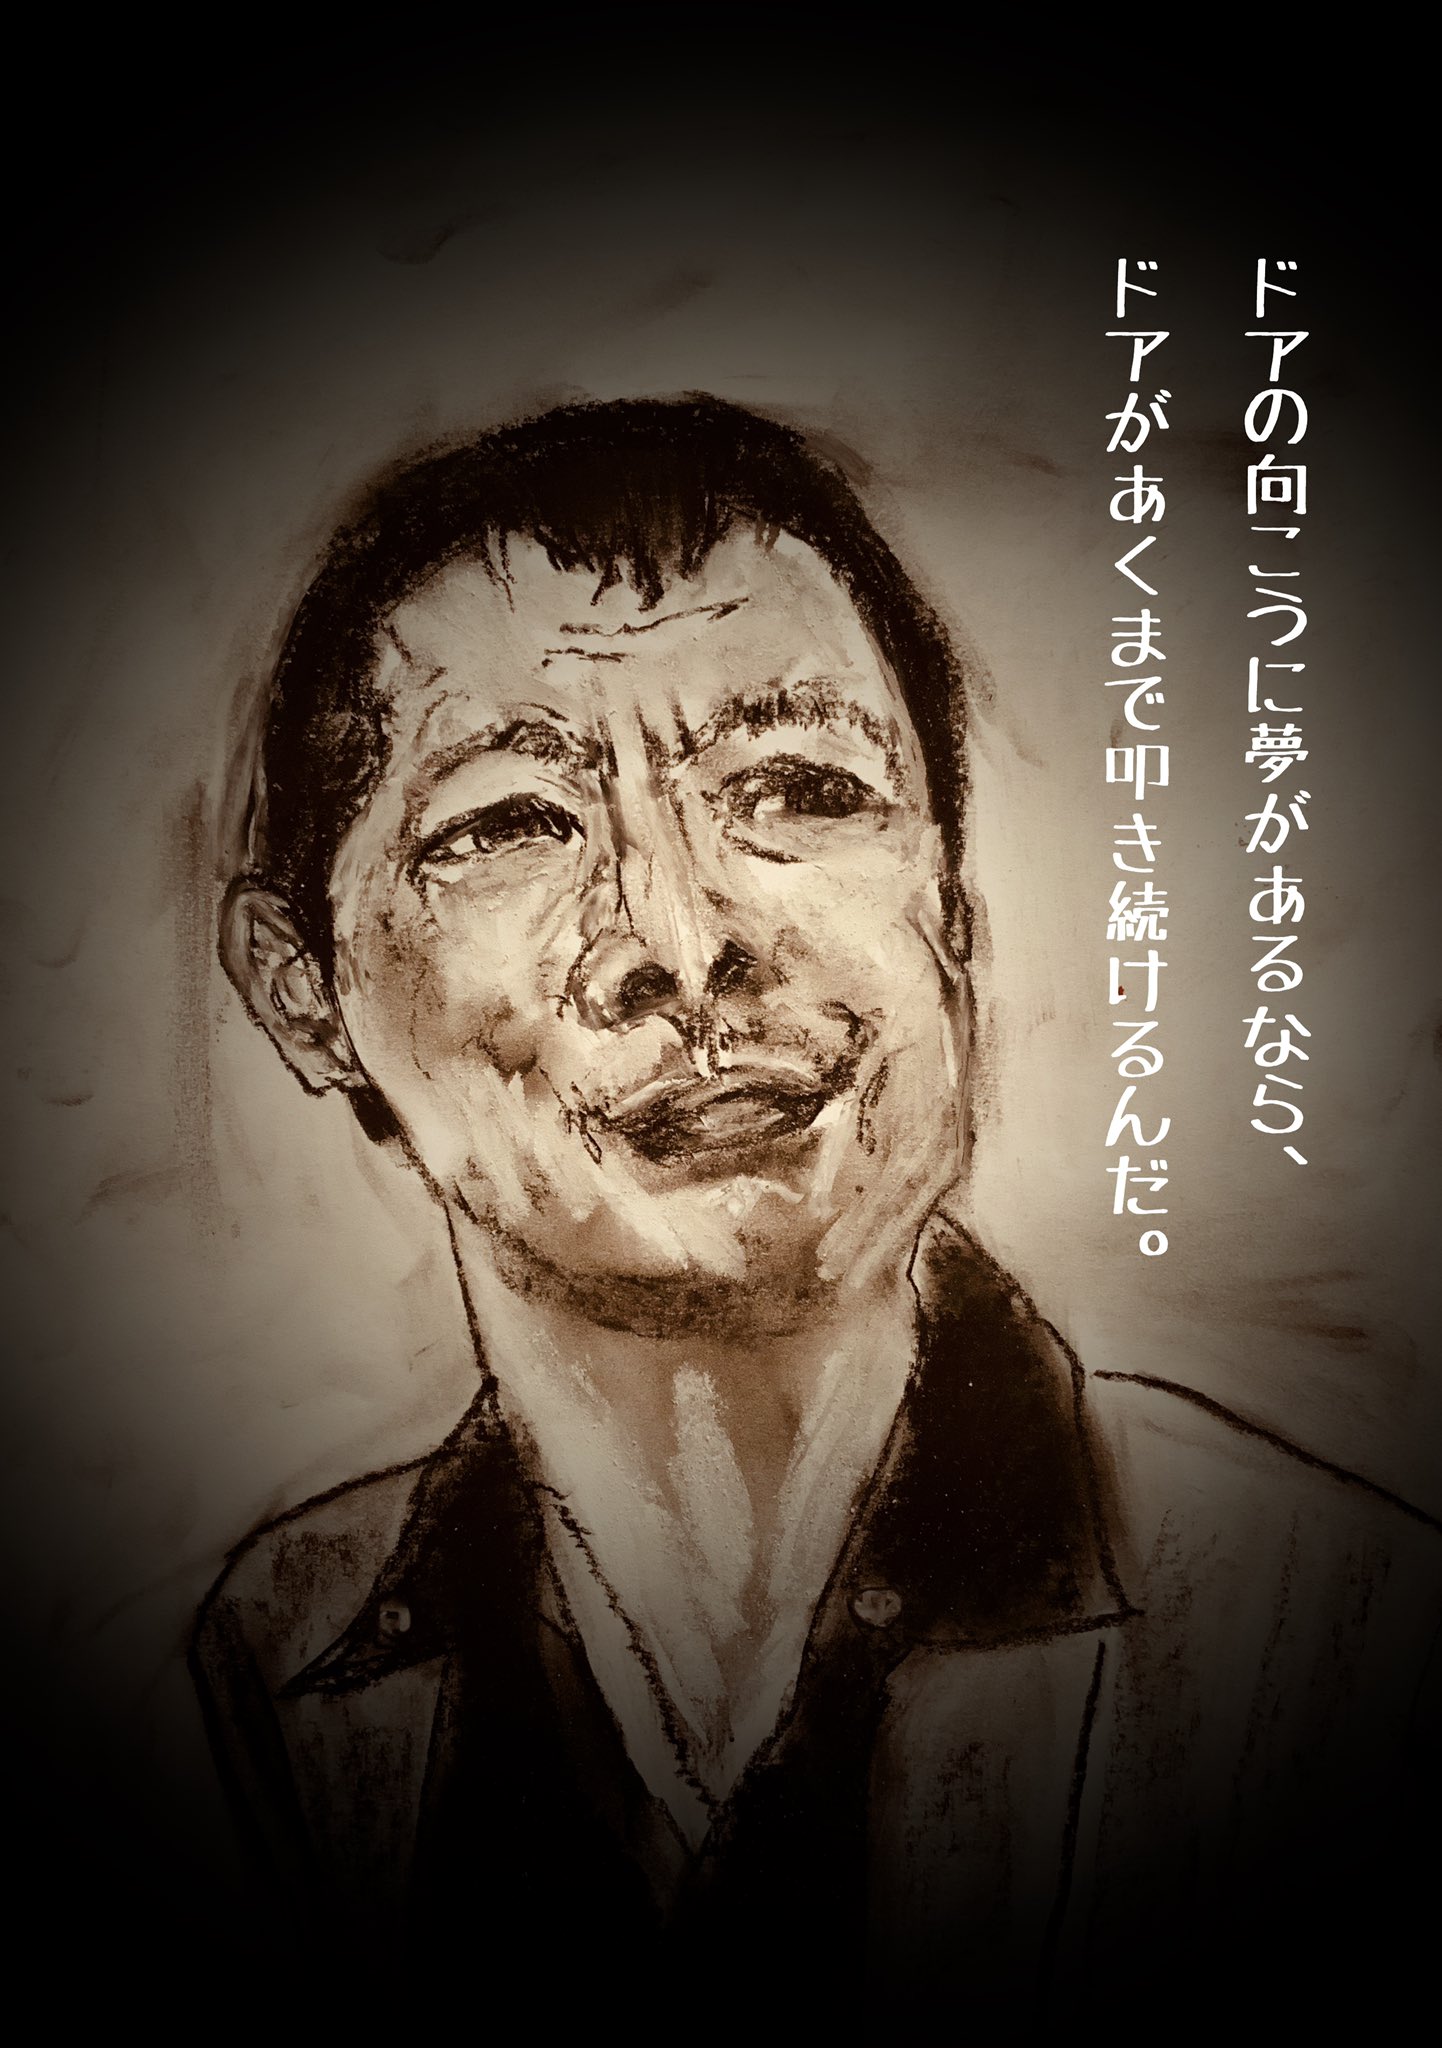 ドアの向こうに夢があるなら、
ドアがあくまで叩き続けるんだ。